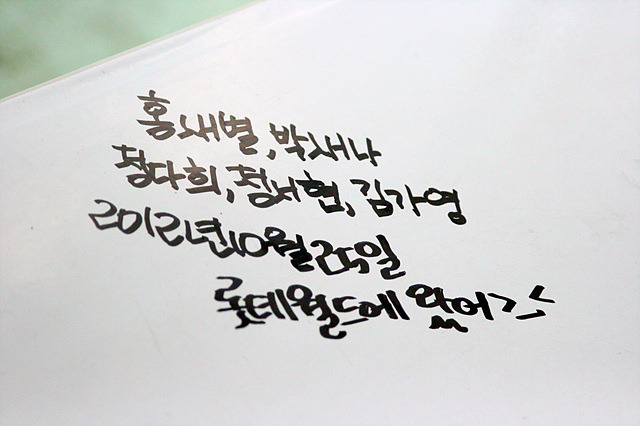 홍새별, 박새나
정다희, 정서협, 김가영
2012년 10월 25일
롯데월드에 왔어 > <